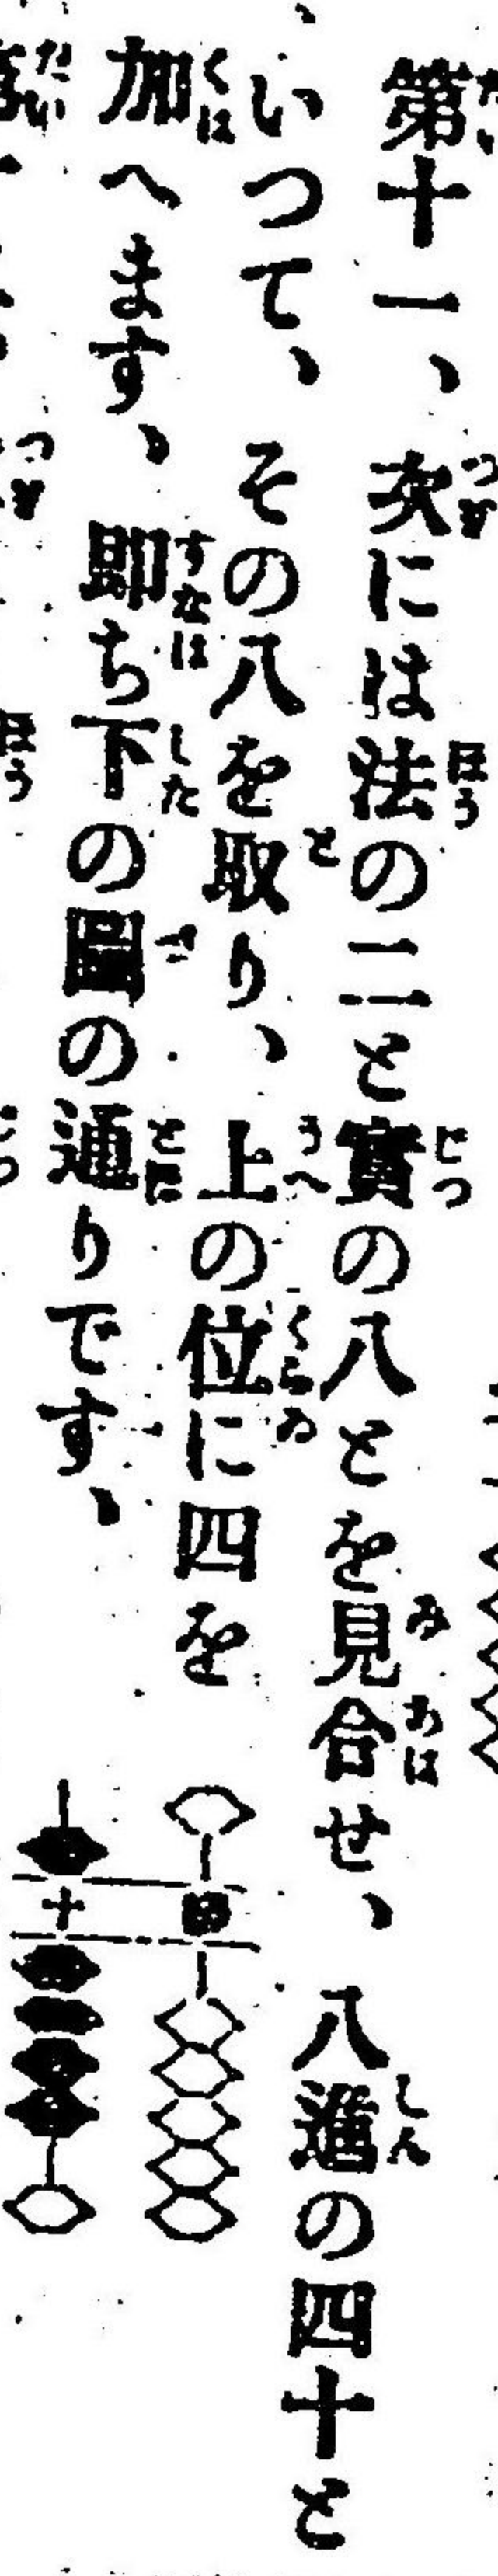 第十一、次には法の二と實の八とを見合せ、八進の四十と
いつて、その八を取り、上の位に四を
加へます、即ち下の圖の通りです、
十